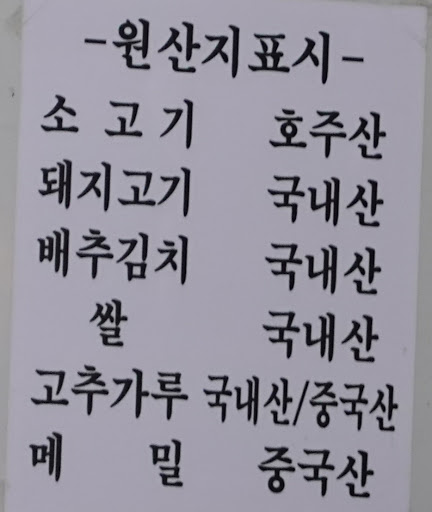 -원산지표시-
소 고 기 호주산
돼지고기 국내산
배추김치 국내산
쌀 국내산
고추가루 국내산/중국산
메 밀 중국산